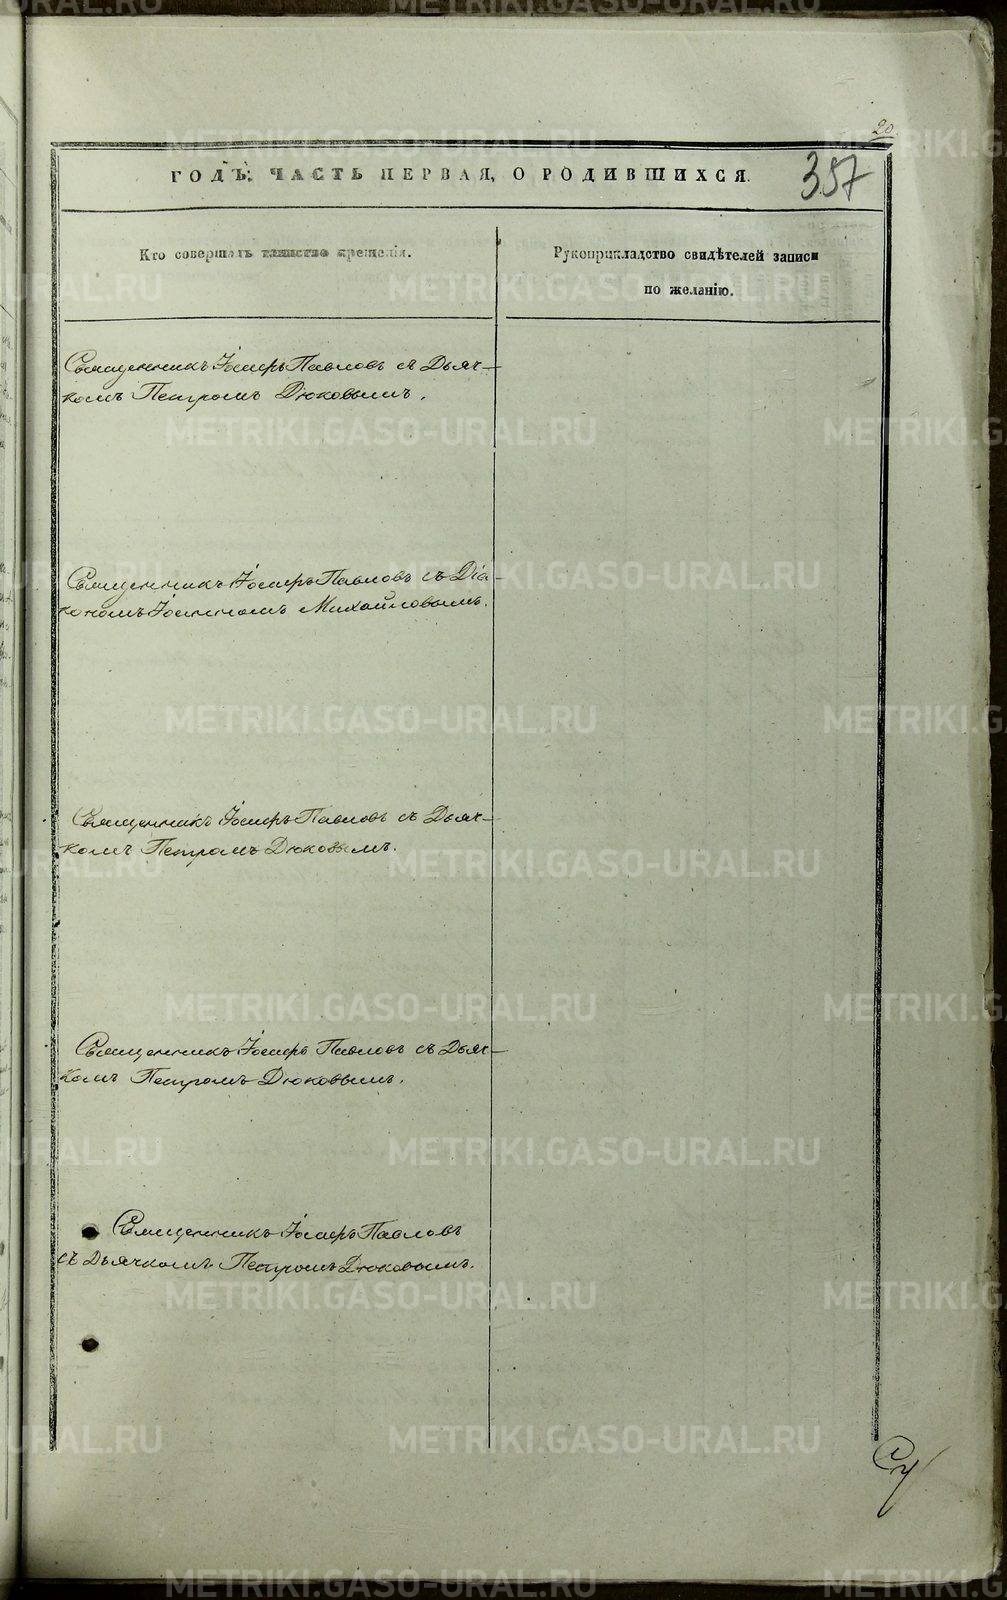 20.
ГОДЪ. ЧАСТЬ ПЕРВАЯ, О РОДИВШИХСЯ.
357
Кто совершалъ таинство крещенія.
Рукоприкладство свидѣтелей записи
по желанію.
Священникъ Іосифъ Павловъ съ Дьяч-
комъ Петромъ Дюковымъ.
Священникъ Іосифъ Павловъ съ Діа-
кономъ Іоанномъ Михайловымъ.
Священникъ Іосифъ Павловъ съ Дьяч-
комъ Петромъ Дюковымъ.
Священникъ Іосифъ Павловъ съ Дьяч-
комъ Петромъ Дюковымъ.
Священникъ Іосифъ Павловъ
съ Дьячкомъ Петромъ Дюковымъ.
METRIKI.GASO-URAL.RU